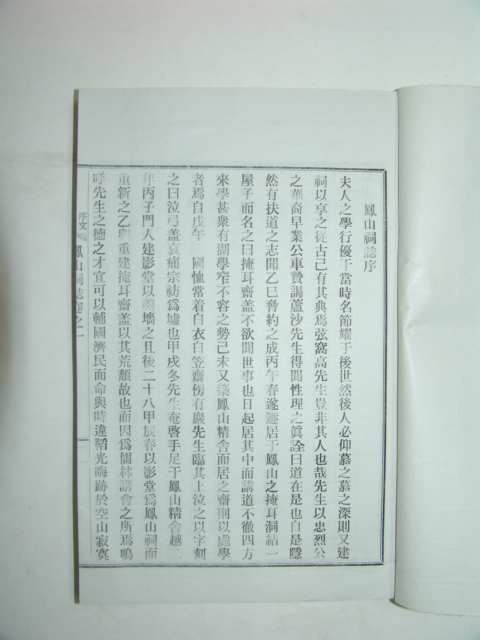 鳳山祠誌序
夫人之學行優于當時名節耀于後世然後人必仰慕之慕之深則又建
祠以享之從古已有其典焉弦窩高先生豈非其人也哉先生以忠烈公
之華裔早業公車贊謁蘆沙先生得聞性理之眞詮曰道在是也自是隱
然有扶道之志聞乙巳脅約之成丙午春遂遯居于鳳山之掩耳洞結一
屋子而名之曰掩耳齋盖不欲聞世事也日起居其中而講道不徹四方
來學甚衆有湖學窄不容之勢己未又築鳳山精舍而居之齋則以處學
者焉自戊午 國恤常着白衣白笠齋傍有巖先生臨其上泣之以字刻
之曰泣弓盖哀痛宗祊爲墟也甲戌冬先生奄啓手足于鳳山精舍越二
年丙子門人建影堂以 墻之且後二十八甲辰春以影堂爲鳳山祠而
重新之乙 重建掩耳齋盖以其荒頹故也而因爲儒林講會之所焉嗚
呼先生之德之才宜可以輔國濟民而命與時違韜光晦跡於空山寂寞
序文 鳳山祠誌卷之一